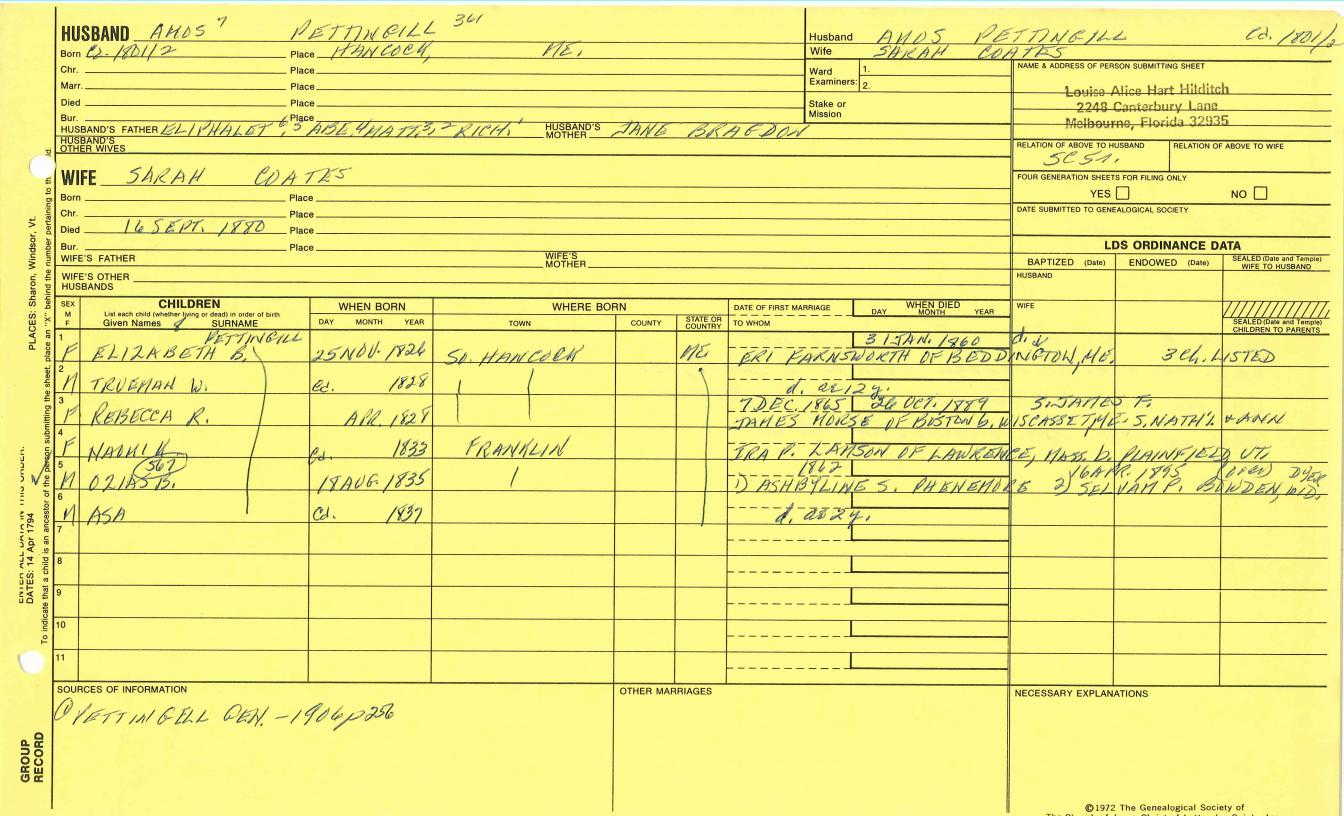 HUSBAND AMOS 7 PETTINGILL 361
Born Ca. 1801/2 Place HANCOCK, ME.
Chr. Place
Marr. Place
Died Place
Bur. Place
HUSBAND'S FATHER ELIPHALET 6, 5 ABE, 4 MATT, 3, 2 RICH. 1 HUSBAND'S MOTHER JANE BRAGDON
HUSBAND'S OTHER WIVES
Husband AMOS PETTINGILL Cd. 1801/2
Wife SARAH COATES
Ward Examiners: 1.
2.
Stake or Mission
NAME & ADDRESS OF PERSON SUBMITTING SHEET
Louise Alice Hart Hilditch
2248 Canterbury Lane
Melbourne, Florida 32935
RELATION OF ABOVE TO HUSBAND RELATION OF ABOVE TO WIFE
5C51.
FOUR GENERATION SHEETS FOR FILING ONLY
YES NO
DATE SUBMITTED TO GENEALOGICAL SOCIETY
WIFE SARAH COATES
Born Place
Chr. Place
Died 16 SEPT. 1880 Place
Bur. Place
WIFE'S FATHER WIFE'S MOTHER
WIFE'S OTHER HUSBANDS
LDS ORDINANCE DATA
BAPTIZED (Date) ENDOWED (Date) SEALED (Date and Temple) WIFE TO HUSBAND
HUSBAND
WIFE
SEALED (Date and Temple) CHILDREN TO PARENTS
SEX M F
CHILDREN
List each child (whether living or dead) in order of birth
Given Names 8 SURNAME
WHEN BORN
DAY MONTH YEAR
WHERE BORN
TOWN COUNTY STATE OR COUNTRY
DATE OF FIRST MARRIAGE
TO WHOM
WHEN DIED
DAY MONTH YEAR
PETTINGILL
1 31 JAN. 1860 d.
F ELIZABETH B. 25 NOV. 1826 SO. HANCOCK ME ERI FARNSWORTH OF BEDDINGTON, ME. 3 CH. LISTED
2
M TRUEMAN W. Cd. 1828 d. ae 12 y.
3 7 DEC. 1865 26 OCT. 1889 S. JAMES F.
F REBECCA R. APR. 1828 JAMES MORSE OF BOSTON b. WISCASSET, ME. S. NATH'L & ANN
4
F NAOMI K Cd. 1833 FRANKLIN IRA P. LAMSON OF LAWRENCE, MASS. b. PLAINFIELD, VT.
5 567 1862 16 APR. 1895 DYER
M OZIAS B. 18 AUG. 1835 1) ASHBYLINE S. PHENEMORE 2) SELVAM P. BOWDEN, WID.
6
M ASA Cd. 1837 d. ae 2 y.
7
8
9
10
11
SOURCES OF INFORMATION
① PETTINGELL GEN. - 1906 p256
OTHER MARRIAGES
NECESSARY EXPLANATIONS
©1972 The Genealogical Society of
ENTER ALL DATA IN THIS ORDER:
DATES: 14 Apr 1794 PLACES: Sharon, Windsor, Vt.
To indicate that a child is an ancestor of the person submitting the sheet, place an "X" behind the number pertaining to
GROUP RECORD